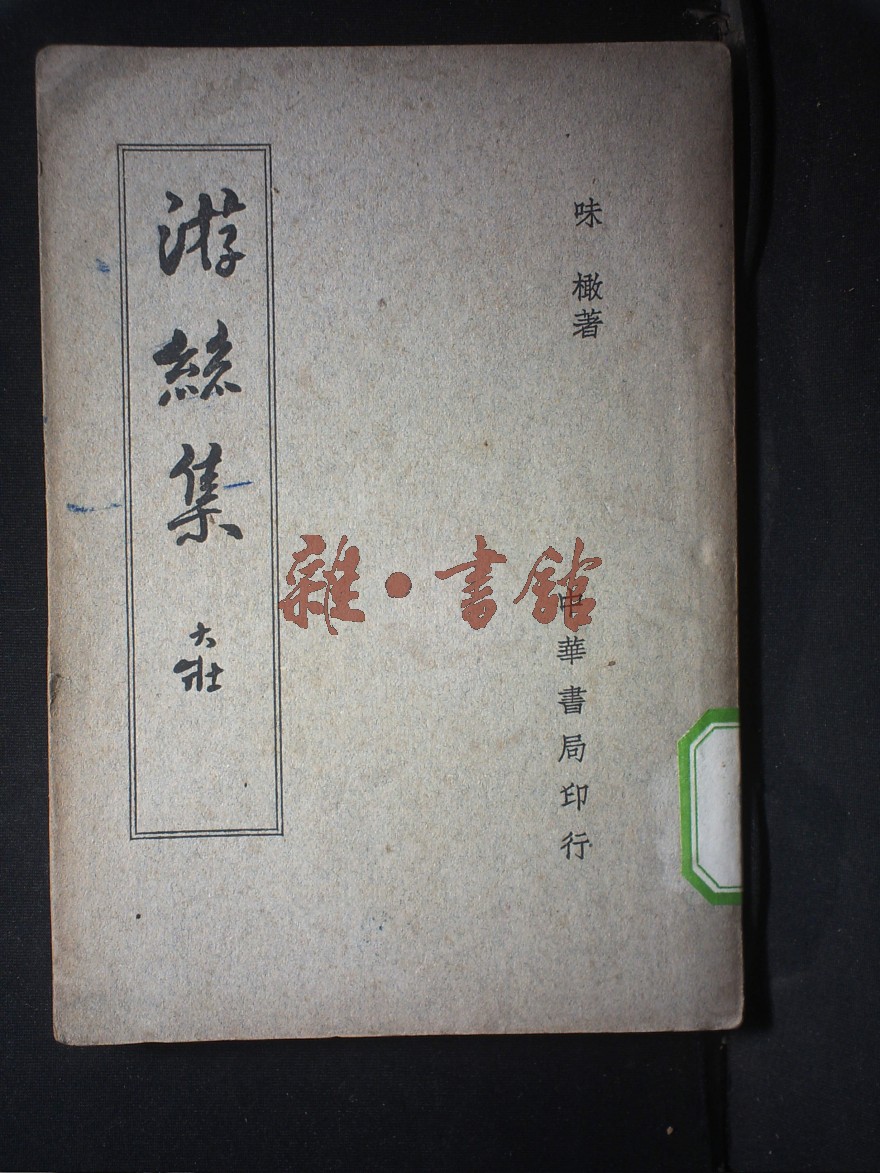 味橄著
游絲集
大壯
中華書局印行
雜·書館